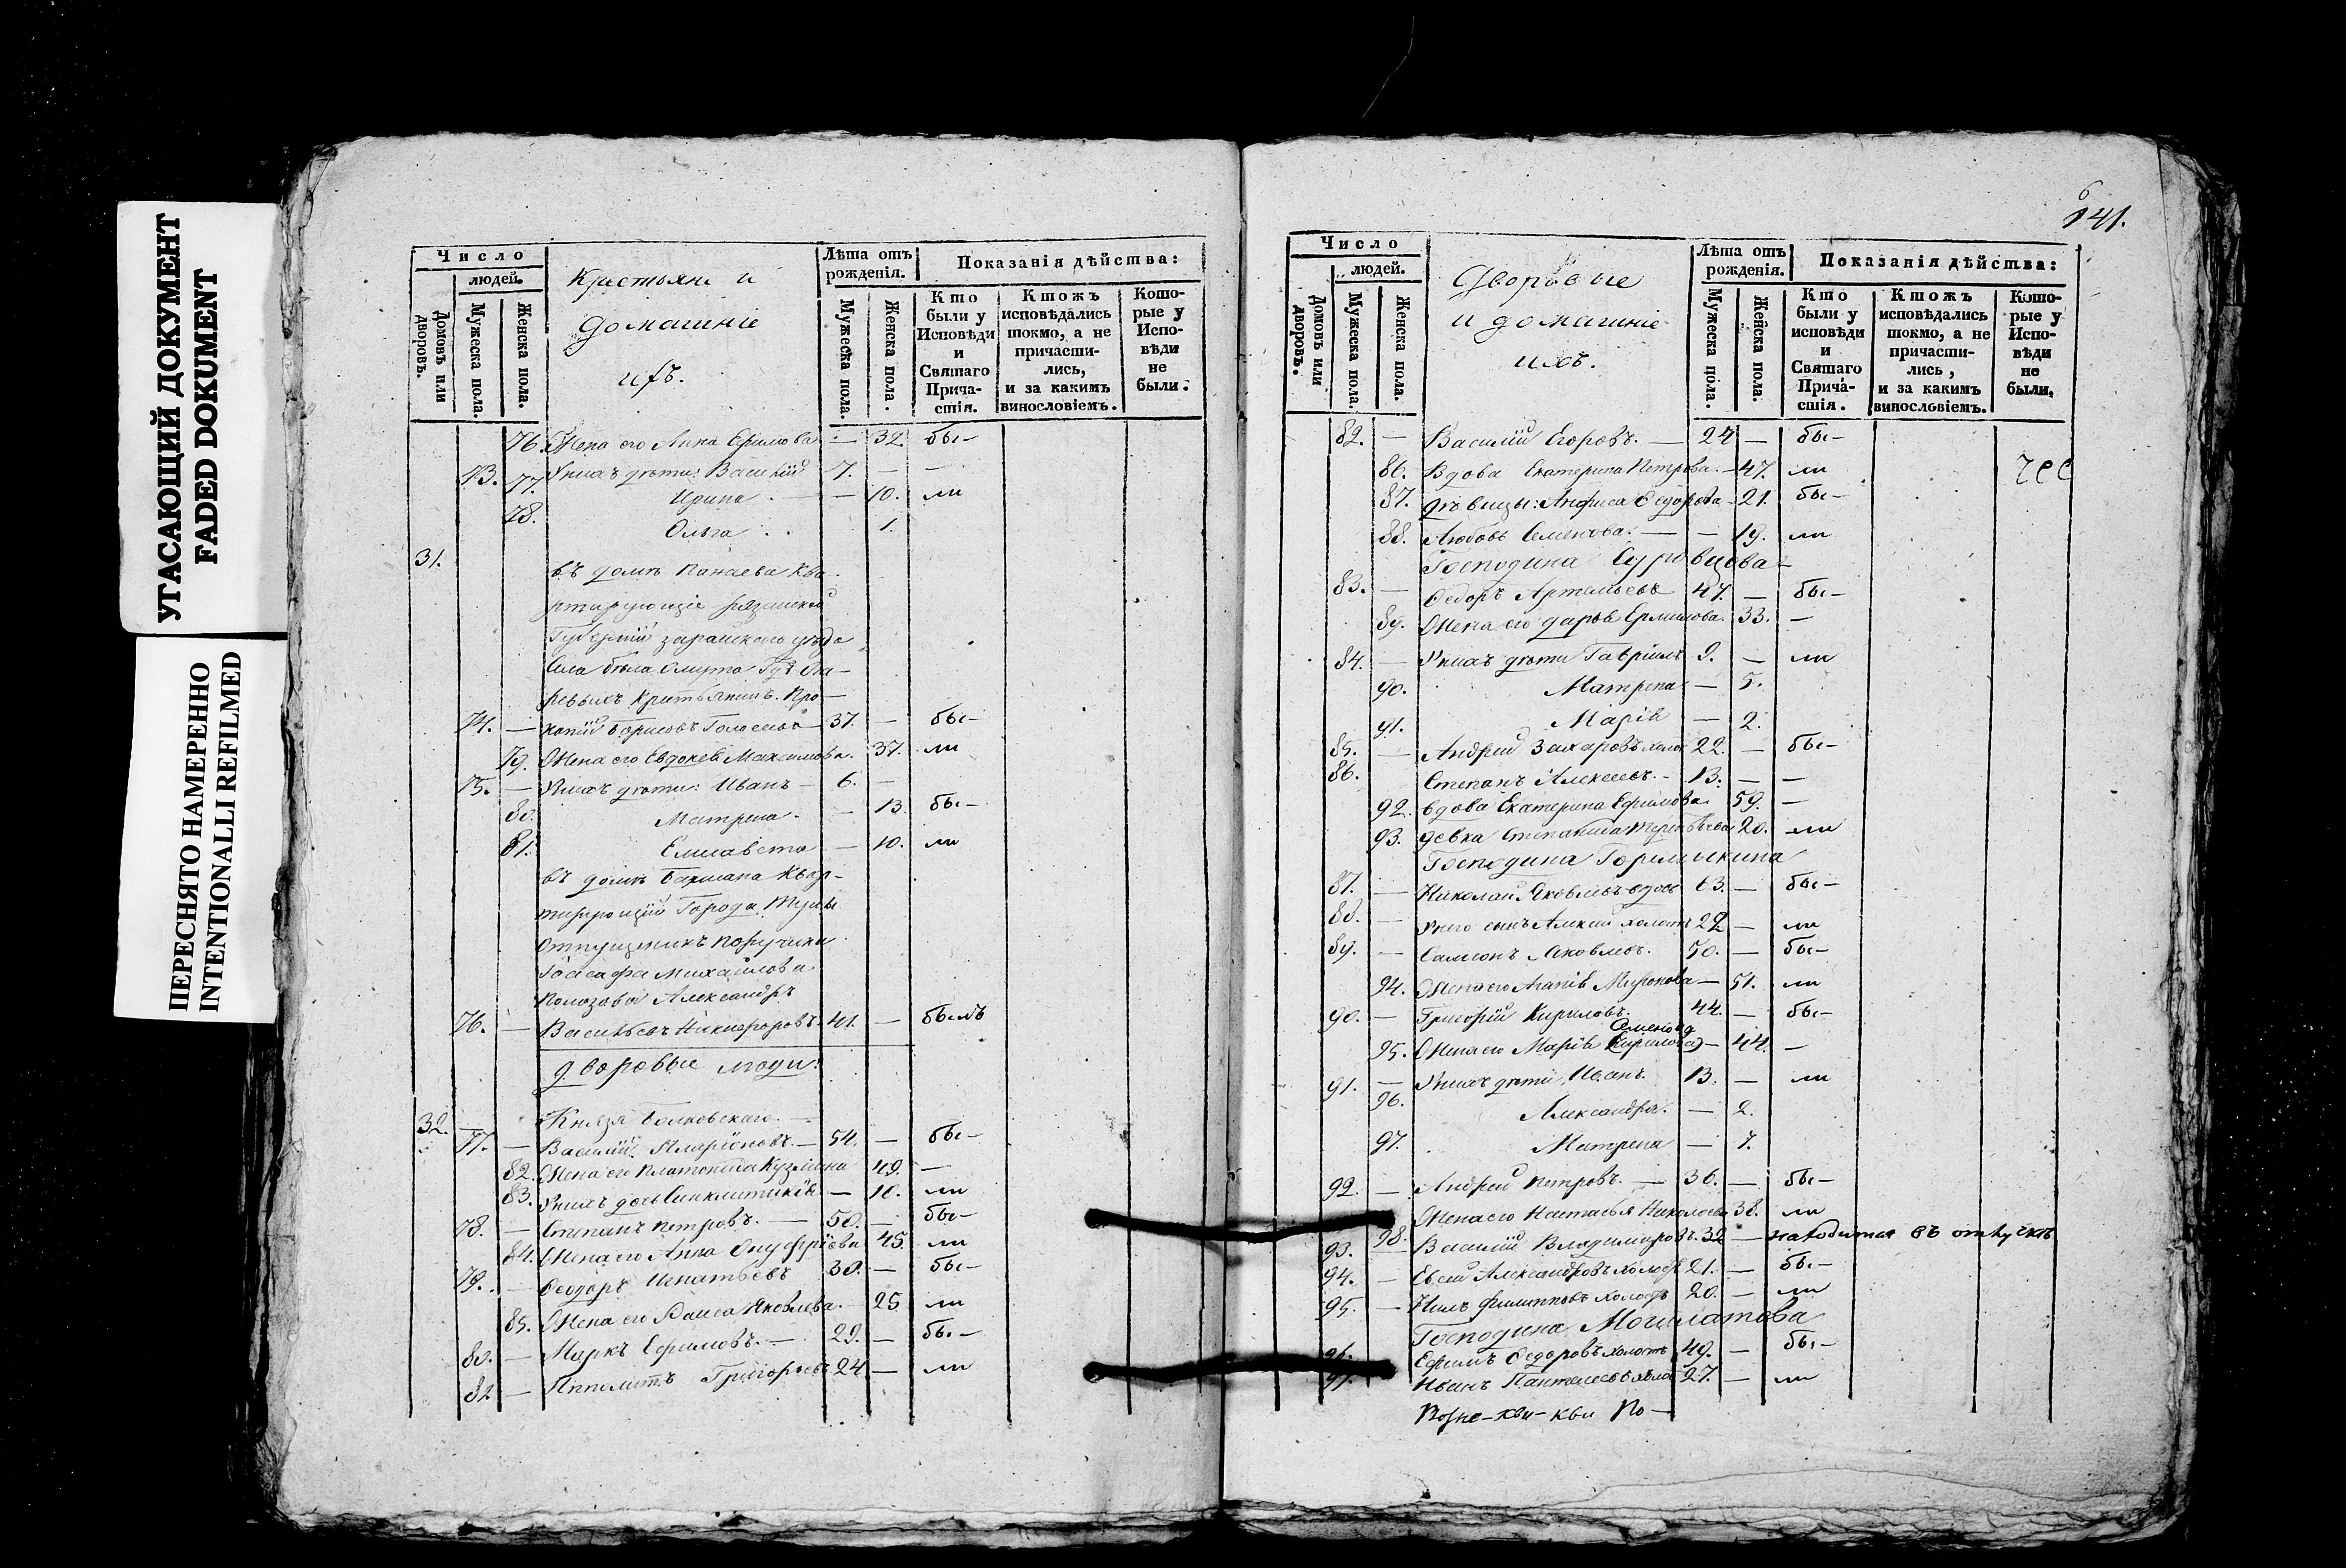 УГАСАЮЩИЙ ДОКУМЕНТ
FADED DOKUMENT
ПЕРЕСНЯТО НАМЕРЕННО
INTENTIONALLI REFILMED
Число
людей.
Домовъ или дворовъ.
Мужеска пола.
Женска пола.
Крестьяне и
домашніе
ихъ.
Лѣта отъ рожденія.
Мужеска пола.
Женска пола.
Показанія дѣйства:
Кто были у Исповѣди и Святаго Причастія.
Ктожъ исповѣдались токмо, а не причастились, и за какимъ винословіемъ.
Которые у Исповѣди не были.
76. Жена его Анна Ефимова — 32. бы-
43. Унихъ дѣти: Василій 7. — —
77. Ирина — 10. ли
78. Ольга 1.
31. въ домѣ Панаева ква-
ртирующіе рязанской
Губерніи зарайскаго уѣзда
Села
74. — копій Борисовъ 37. — бы-
79. Жена его Евдокея Максимова. 37. ли
75. — Унихъ дѣти: Иванъ — 6. —
80. Матрена — 13. бы-
81. Елисавета — 10. ли
въ домѣ квар-
тирующій Города Тулы
отпущеникъ поручика
Іоасафа Михайлова
Александръ
76. — Васильевъ Никифоровъ 41. — былъ
дворовые люди:
32. — Князя Волковскаго. —
77. — Василій — 54. — бы-
82. Жена его Кузмина 49. —
83. Унихъ дочь Синклитикія — 10. ли
78. — Степанъ Петровъ. — 50. — бы-
84. Жена его Анна Онуфріева 45. ли
79. — Ѳеодоръ Игнатьевъ 30. — бы-
85. Жена его Яковлева. — 25 ли
80. — Маркъ Ефимовъ. — 29. — бы-
82 — Ипполитъ Григорьевъ 24 — ли
6
141.
Число
людей.
Домовъ или дворовъ.
Мужеска пола.
Женска пола.
Дворовые
и домашніе
ихъ.
Лѣта отъ рожденія.
Мужеска пола.
Женска пола.
Показанія дѣйства:
Кто были у исповѣди и Святаго Причастія.
Ктожъ исповѣдались токмо, а не причастились, и за какимъ винословіемъ.
Которые у Исповѣди не были.
82. — Василій Егоровъ. — 24 — бы-
86. Вдова Екатерина Петрова. — 47. ли
87. дѣвицы: Анфиса Ѳедорова — 21. бы-
88. Любовь Семенова. — — 19. ли
Господина Суровцова —
83. — Ѳедоръ Артемьевъ 47. — бы-
89. Жена его Дарья Ермилова 33. —
84. — Унихъ дѣти Гавріилъ 9. — ли
90. Матрена — 5.
91. Марія — 2.
85. — Андрей Захаровъ холос 22. — бы-
86. Степанъ Алексеевъ. — 13. — —
92. вдова Екатерина Ефимова 59. —
93. девка Степанида Терентьева 20. ли
Господина Горемыкина
87. — Николай Яковлевъ вдовъ 63. — бы-
88. — Унего сынъ Алексей холостъ 22 — ли
89. — Самсонъ Яковлевъ. 50. — бы-
94. Жена его Агапія Миронова — 51. ли
90. — Григорій Кириловъ. 44. — бы-
Семенова
95. Жена его Марія (Кирилова) — 44. —
91. — Унихъ дѣти, Иванъ. 13. — ли
96. Александра. — 2.
97. Матрена — 7.
92. — Андрей Петровъ. — 36. — бы-
98. Жена его Настасья Николаева 38. ли
93. — Василій Владимировъ. 32 — находится въ отлучкѣ
94. — Евсей Александровъ холостъ 21. — бы-
95. — Нилъ Филиповъ холостъ 20. — ли
Господина
96. Ефимъ Ѳедоровъ холостъ 49. — бы-
97. Иванъ Пантелеевъ холо 27. — ли